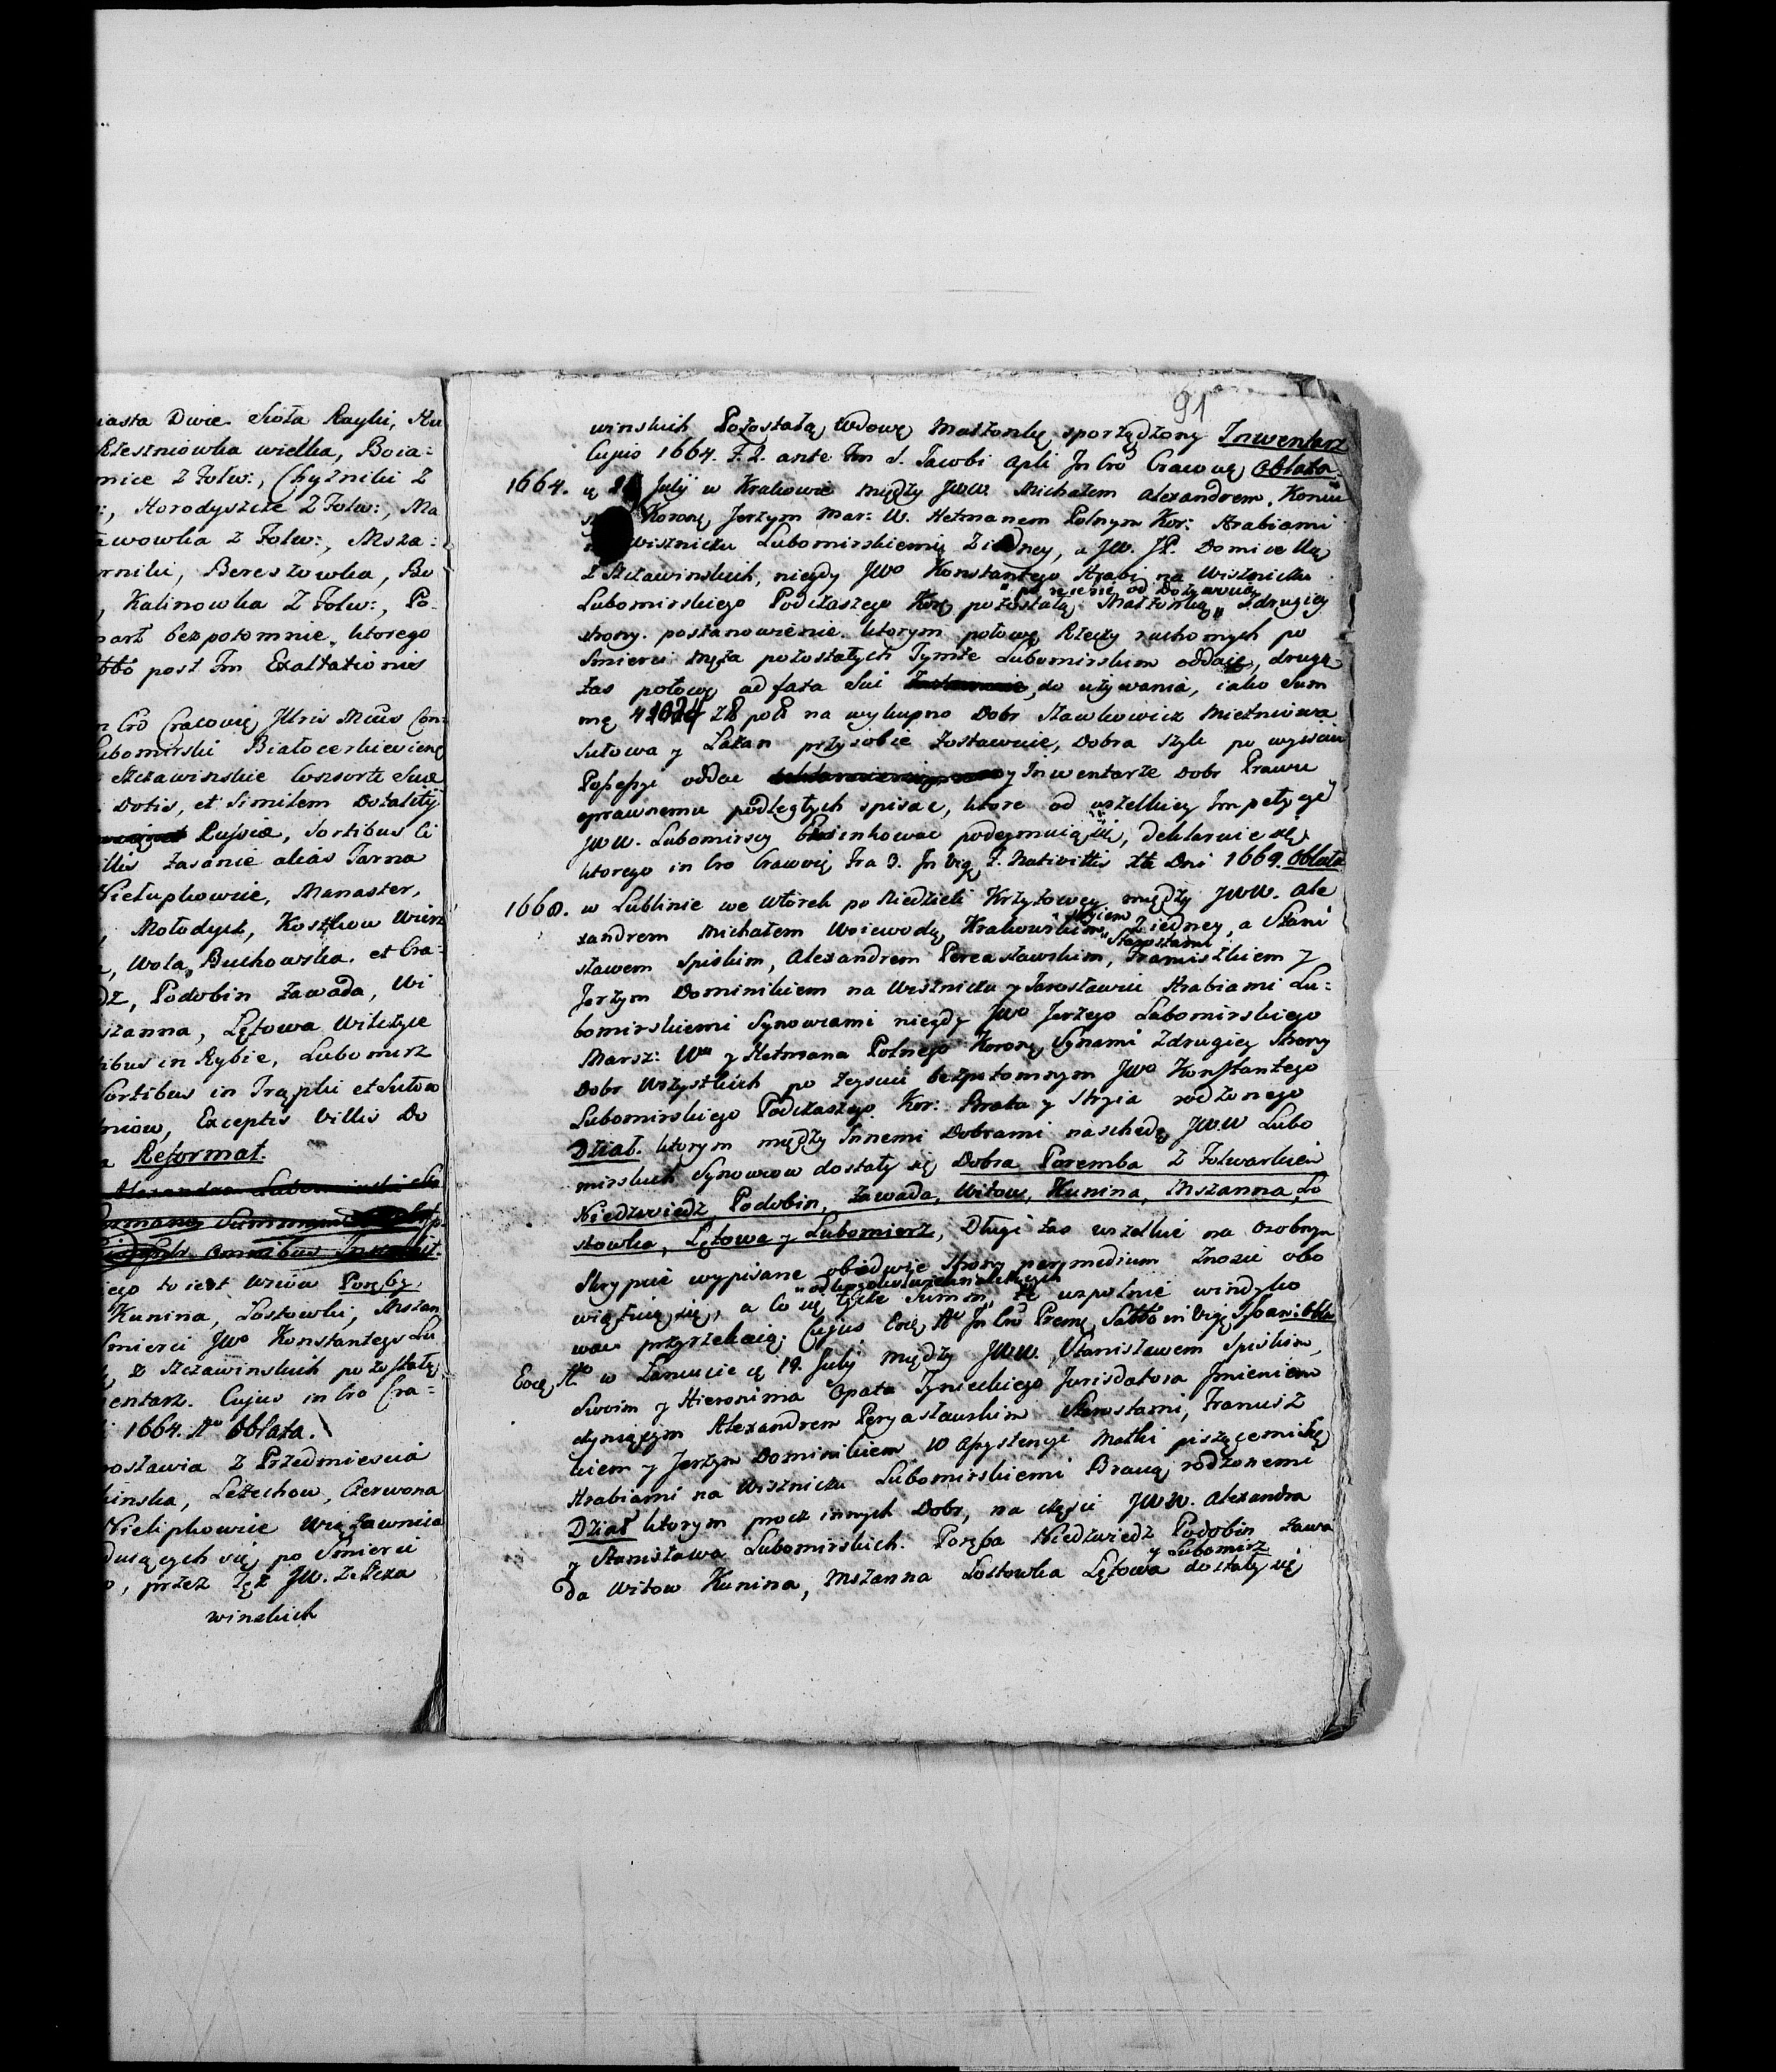 iasta Dwie Sioła Rayki, Hu
Rzeszniowka wielka, Boia=
mice z Folw:, Chyżniki z
:, Horodyszcze z Folw:, Ma
awowka z Folw:, Msza=
rniki, Berezowka, Bo
, Kalinowka z Folw:, Po-
marł bezpotomnie, ktorego
post Fm Exaltationis
n Cró Cracovię
ubomirski Białocerkiewieng
Szczawinskie Consorte Suæ
Dotis, et Similem Dotality
Russia, Sortibus
illis Zasanie alias Tarna
Nielupkowice, Manaster,
, Mołodycz, Kostkow Wierz
a, Wola Buchowska, et Cra=
dz, Podobin Zawada, Wi
szanna, Lętowa Witczyce
tibus in Rybie, Lubomirz
Sortibus in Trąpki et Sułow
tniow, Exceptis Villis Do
a Reformat.
Alexandro Lubomirski
Summam
omnibus
iego to iest Wzwa Poręby,
Kunina, Lostowki, Mszan
Smierci JWo Konstantego Lu
z Szczawinskich pozostałę
entarz. Cujus in Cro Cra=
1664. Ao Oblata.
rosławia z Przedmiescia
kinska, Leżechow, Czerwona
Nielipkowice Więzawnica
duiących się po Smierci
o, przez Tęż JW. z Szcza
winskich
91
winskich Pozostałą Wdowę Małżonkę sporządzony Inwentarz
Cujus 1664. F. 2. ante Fm S. Jacobi Apli In Cró Cracovię Oblata.
1664. July w Krakowie między JWW. Michałem Alexandrem, Koniu
Koronę Jerzym Mar: W. Hetmanem Polnym Kor: Hrabiami
Wisznicku Lubomirskiemi z iedney, a JW. JP. Domicellą
z Szczawinskich, niegdy JWo Konstantego Hrabi na Wisznicku
„ od Dożywocia
Lubomirskiego Podczaszego Korę pozostałą Małżonką „ z drugiey
strony. postanowienie. ktorym połowę Rzeczy ruchomych po
Smierci Męża pozostałych Tymże Lubomirskim oddaie, drugą
zas połowę ad fata Sui do używania, iako Sum
mę Zł pol na wykupno Dobr Sławkowicz Mietniowa
Sułowa y Łazan przy sobie zostawuie, Dobra zzyli po wyisciu
Possessyi oddac y Inwentarze Dobr Prawu
oprawnemu podległych spisac, ktore od wszelkiey Impetycyi
JWW. Lubomirscy podeymuią się, deklaruie się
ktorego in Cro Cracovię Fra 3. In Vig, F. Nativittis Dni 1669. Oblata
1668. w Lublinie we Wtorek po Niedzieli Krzyżowey między JWW. Ale
„ Stryiem
xandrem Michałem Woiewodą Krakowskim „ z iedney, a Stani
„ Starostami
sławem Spiskim, Alexandrem Pereasławskim, Franciszkiem y
Jerzym Dominikiem na Wisznicku y Jarosławiu Hrabiami Lu=
bomirskiemi Synowcami niegdy JWo Jerzego Lubomirskiego
Marsz: Wo y Hetmana Polnego Koronę Synami z drugiey Strony
Dobr Wszystkich po zeysciu bezpotomnym JWo Konstantego
Lubomirskiego Podczaszego Kor: Brata y Stryia rodzonego
Dział. ktorym między Innemi Dobrami na schedę JWW Lubo
mirskich Synowcow dostały się Dobra Poremba z Folwarkiem
Niedzwiedz, Podobin, Zawada, Witow, Kunina, Mszanna, Lo
stowka, Lętowa y Lubomierz, Długi zas wszelkie na osobnym
Skrypcie wypisane obiedwie Strony per medium Znosic obo
wiązuią się, a co się tycze Summ, te wspolnie windyko
wac przyrzekaią; Cujus Eoę Ao In Cro Premę Sabbo in Vig S Joan: Obla
Eoę Ao w Lancucie ę 19. July między JWW. Stanisławem Spiskim,
Swoim y Hieronima Opata Tynieckiego Jurisdatora Jmieniem
czyniącym Alexandrem Peryasławskim Starostami, Francisz
kiem y Jerzym Dominikiem w Assystencyi Matki piszącemi się
Hrabiami na Wisznicku Lubomirskiemi Bracią rodzonemi
Dział ktorym procz innych Dobr, na częsci JWW. Alexandra
y Stanisława Lubomirskich. Poręba Niedzwiedz Podobin Zawa
y Lubomirz
da Witow Kunina, Mszanna Lostowka Lętowa dostały się